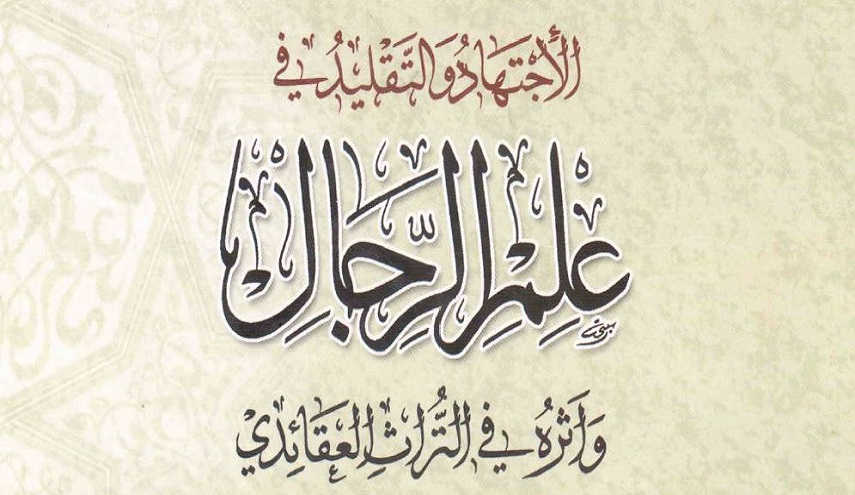 الاجْتِهَادُ وَالتَّقْلِيدُ فِي
عِلْمِ الرِّجَالِ
وَاَثَرُهُ فِي التُّرَاثِ الْعَقَائِدِي